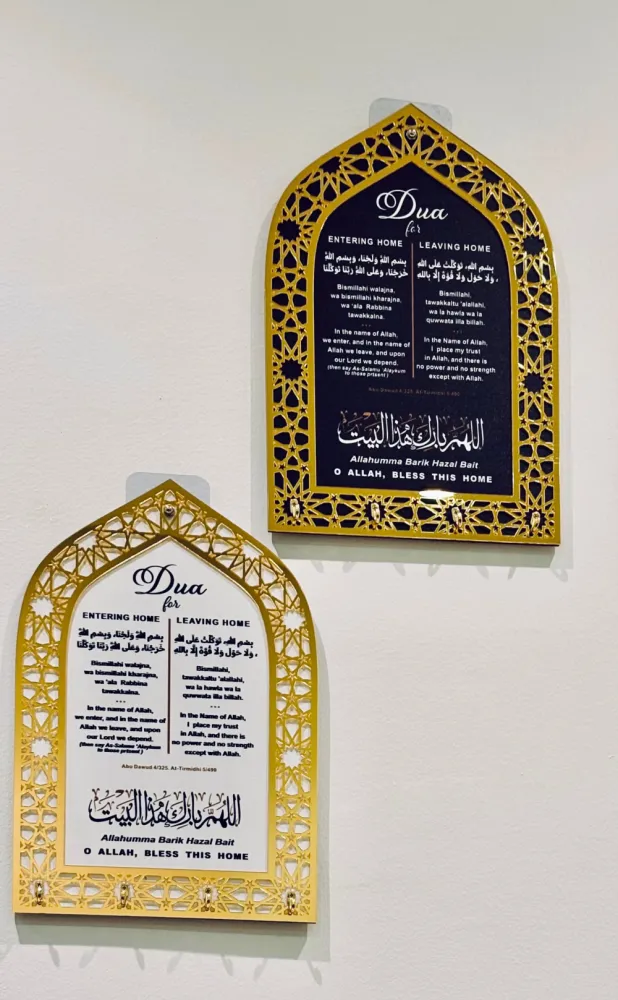 Dua
for
ENTERING HOME
بِسْمِ اللهِ وَلَجْنَا، وَبِسْمِ اللهِ
خَرَجْنَا، وَعَلَى اللهِ رَبِّنَا تَوَكَّلْنَا
Bismillahi walajna,
wa bismillahi kharajna,
wa 'ala Rabbina
tawakkalna.
---
In the name of Allah,
we enter, and in the name of
Allah we leave, and upon
our Lord we depend.
(then say As-Salamu 'Alaykum
to those prtsent )
LEAVING HOME
بِسْمِ اللهِ، تَوَكَّلْتُ عَلَى اللهِ
، وَلَا حَوْلَ وَلَا قُوَّةَ إِلَّا بِاللهِ
Bismillahi,
tawakkaltu 'alallahi,
wa la hawla wa la
quwwata illa billah.
---
In the Name of Allah,
I place my trust
in Allah, and there is
no power and no strength
except with Allah.
Abu Dawud 4/325. At-Tirmidhi 5/490
اللهم بارك هذا البيت
Allahumma Barik Hazal Bait
O ALLAH, BLESS THIS HOME
Dua
for
ENTERING HOME
بِسْمِ اللهِ وَلَجْنَا، وَبِسْمِ اللهِ
خَرَجْنَا، وَعَلَى اللهِ رَبِّنَا تَوَكَّلْنَا
Bismillahi walajna,
wa bismillahi kharajna,
wa 'ala Rabbina
tawakkalna.
---
In the name of Allah,
we enter, and in the name of
Allah we leave, and upon
our Lord we depend.
(then say As-Salamu 'Alaykum
to those prtsent )
LEAVING HOME
بِسْمِ اللهِ، تَوَكَّلْتُ عَلَى اللهِ
، وَلَا حَوْلَ وَلَا قُوَّةَ إِلَّا بِاللهِ
Bismillahi,
tawakkaltu 'alallahi,
wa la hawla wa la
quwwata illa billah.
---
In the Name of Allah,
I place my trust
in Allah, and there is
no power and no strength
except with Allah.
Abu Dawud 4/325. At-Tirmidhi 5/490
اللهم بارك هذا البيت
Allahumma Barik Hazal Bait
O ALLAH, BLESS THIS HOME